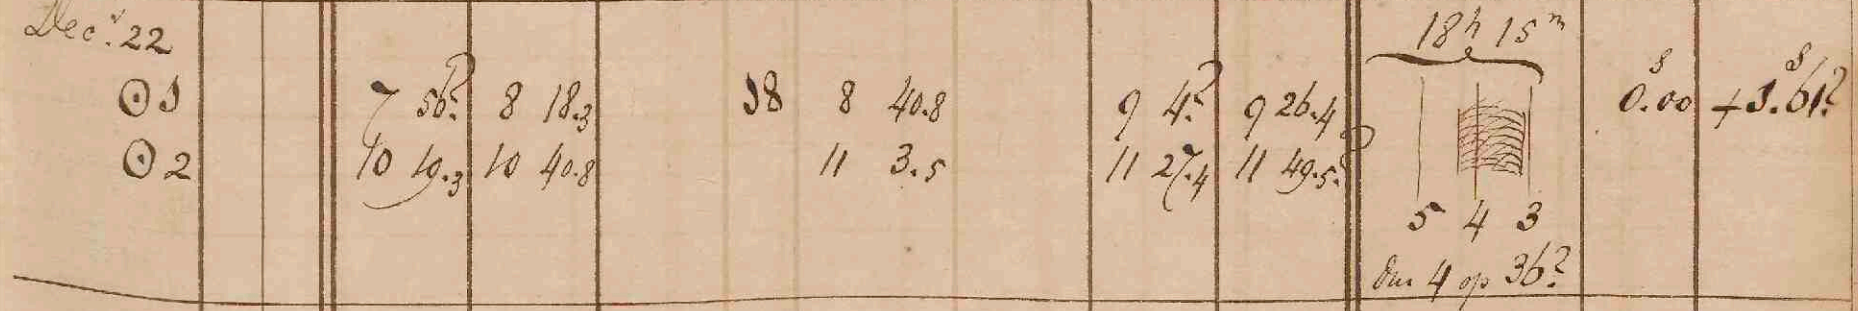 Dec.r 22
18h 15m
⊙ 1 7 56.? 8 18.3 18 8 40.8 9 4.? 9 26.4 s 0.00 s +3.61?
⊙ 2 10 19.3 10 40.8 11 3.5 11 27.4 11 49.5?
5 4 3
4 op 36?